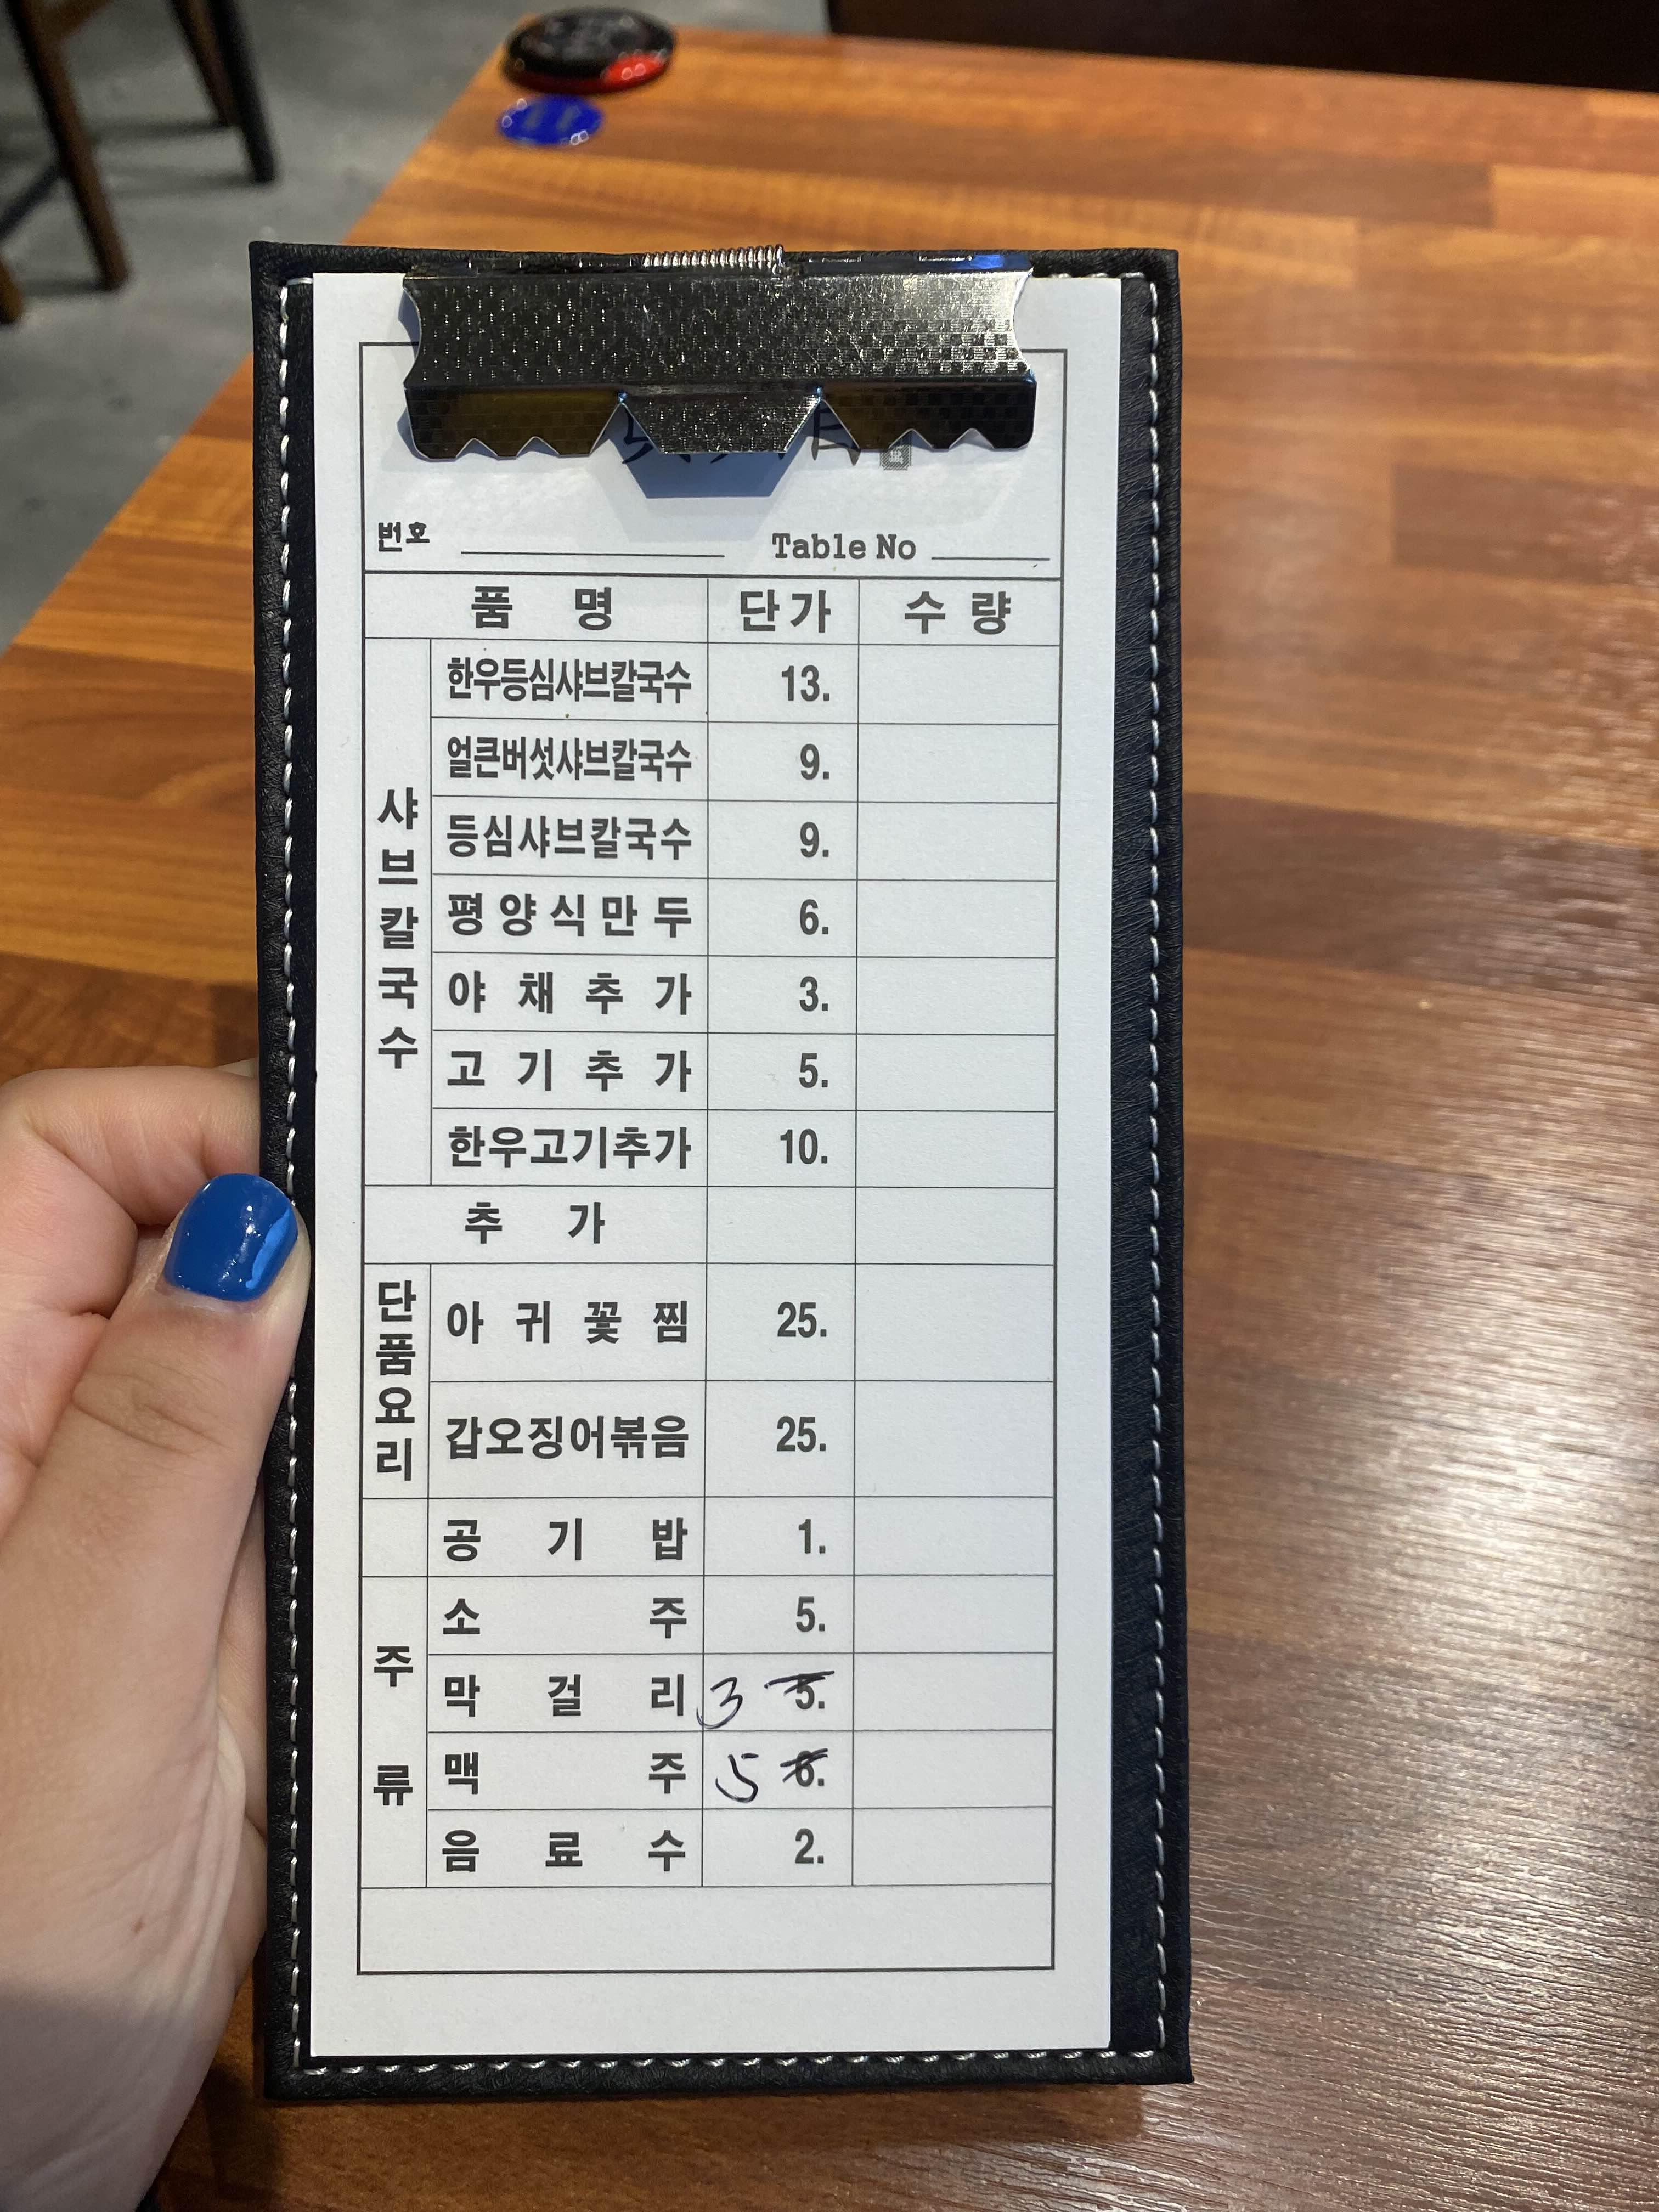 번호 Table No
품 명 단가 수량
샤브칼국수
한우등심샤브칼국수 13.
얼큰버섯샤브칼국수 9.
등심샤브칼국수 9.
평양식만두 6.
야채추가 3.
고기추가 5.
한우고기추가 10.
추 가
단품요리
아귀꽃찜 25.
갑오징어볶음 25.
공기밥 1.
주류
소주 5.
막걸리 3 5.
맥주 5 6.
음료수 2.